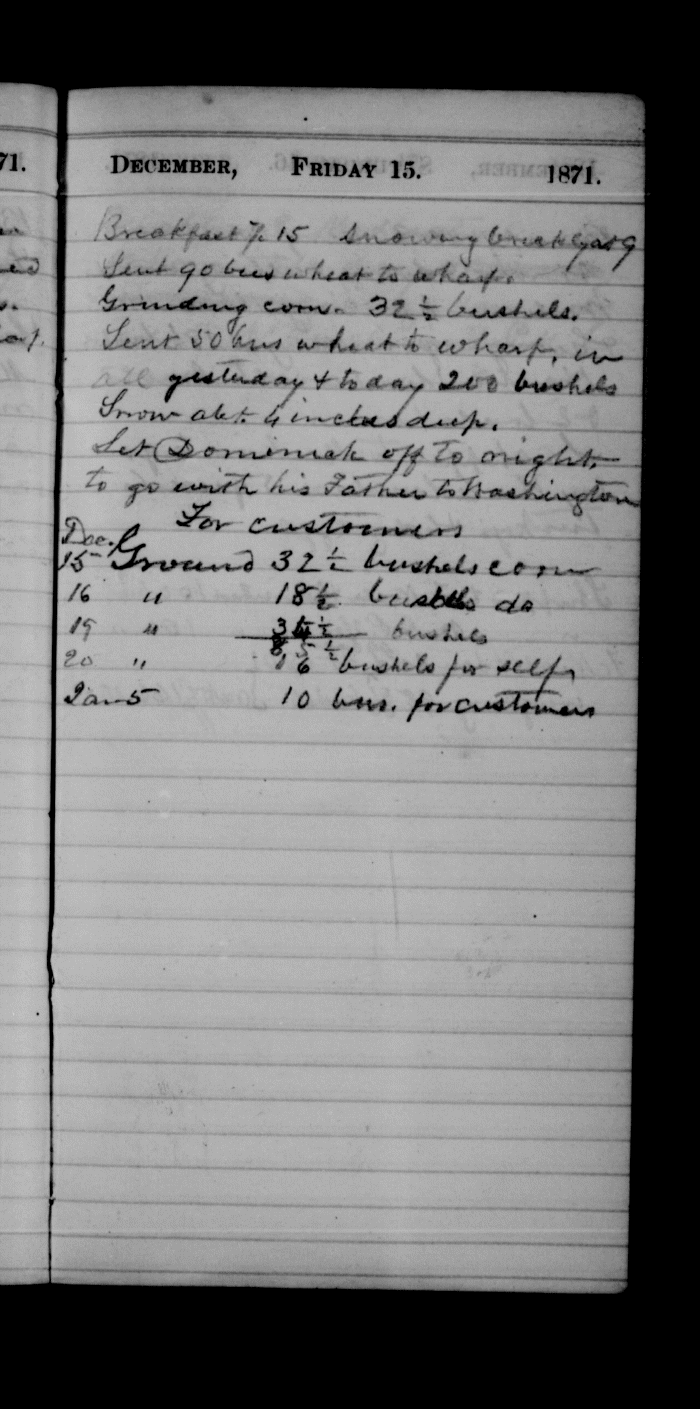 71.
DECEMBER, FRIDAY 15. 1871.
Breakfast 7. 15 Snowing break at 9
Sent 90 bus wheat to wharf.
Grinding corn. 32 1/2 bushels.
Sent 50 bus wheat to wharf, in
all yesterday & today 200 bushels
Snow abt. 4 inches deep.
Let Dominick off to night
to go with his Father to Washington
For customers
Dec.
15 Ground 32 1/2 bushels corn
16 " 18 1/2 bushels do
19 " 1/2 bushels
20 " 16 bushels for self
Jan 5 10 bus. for customers